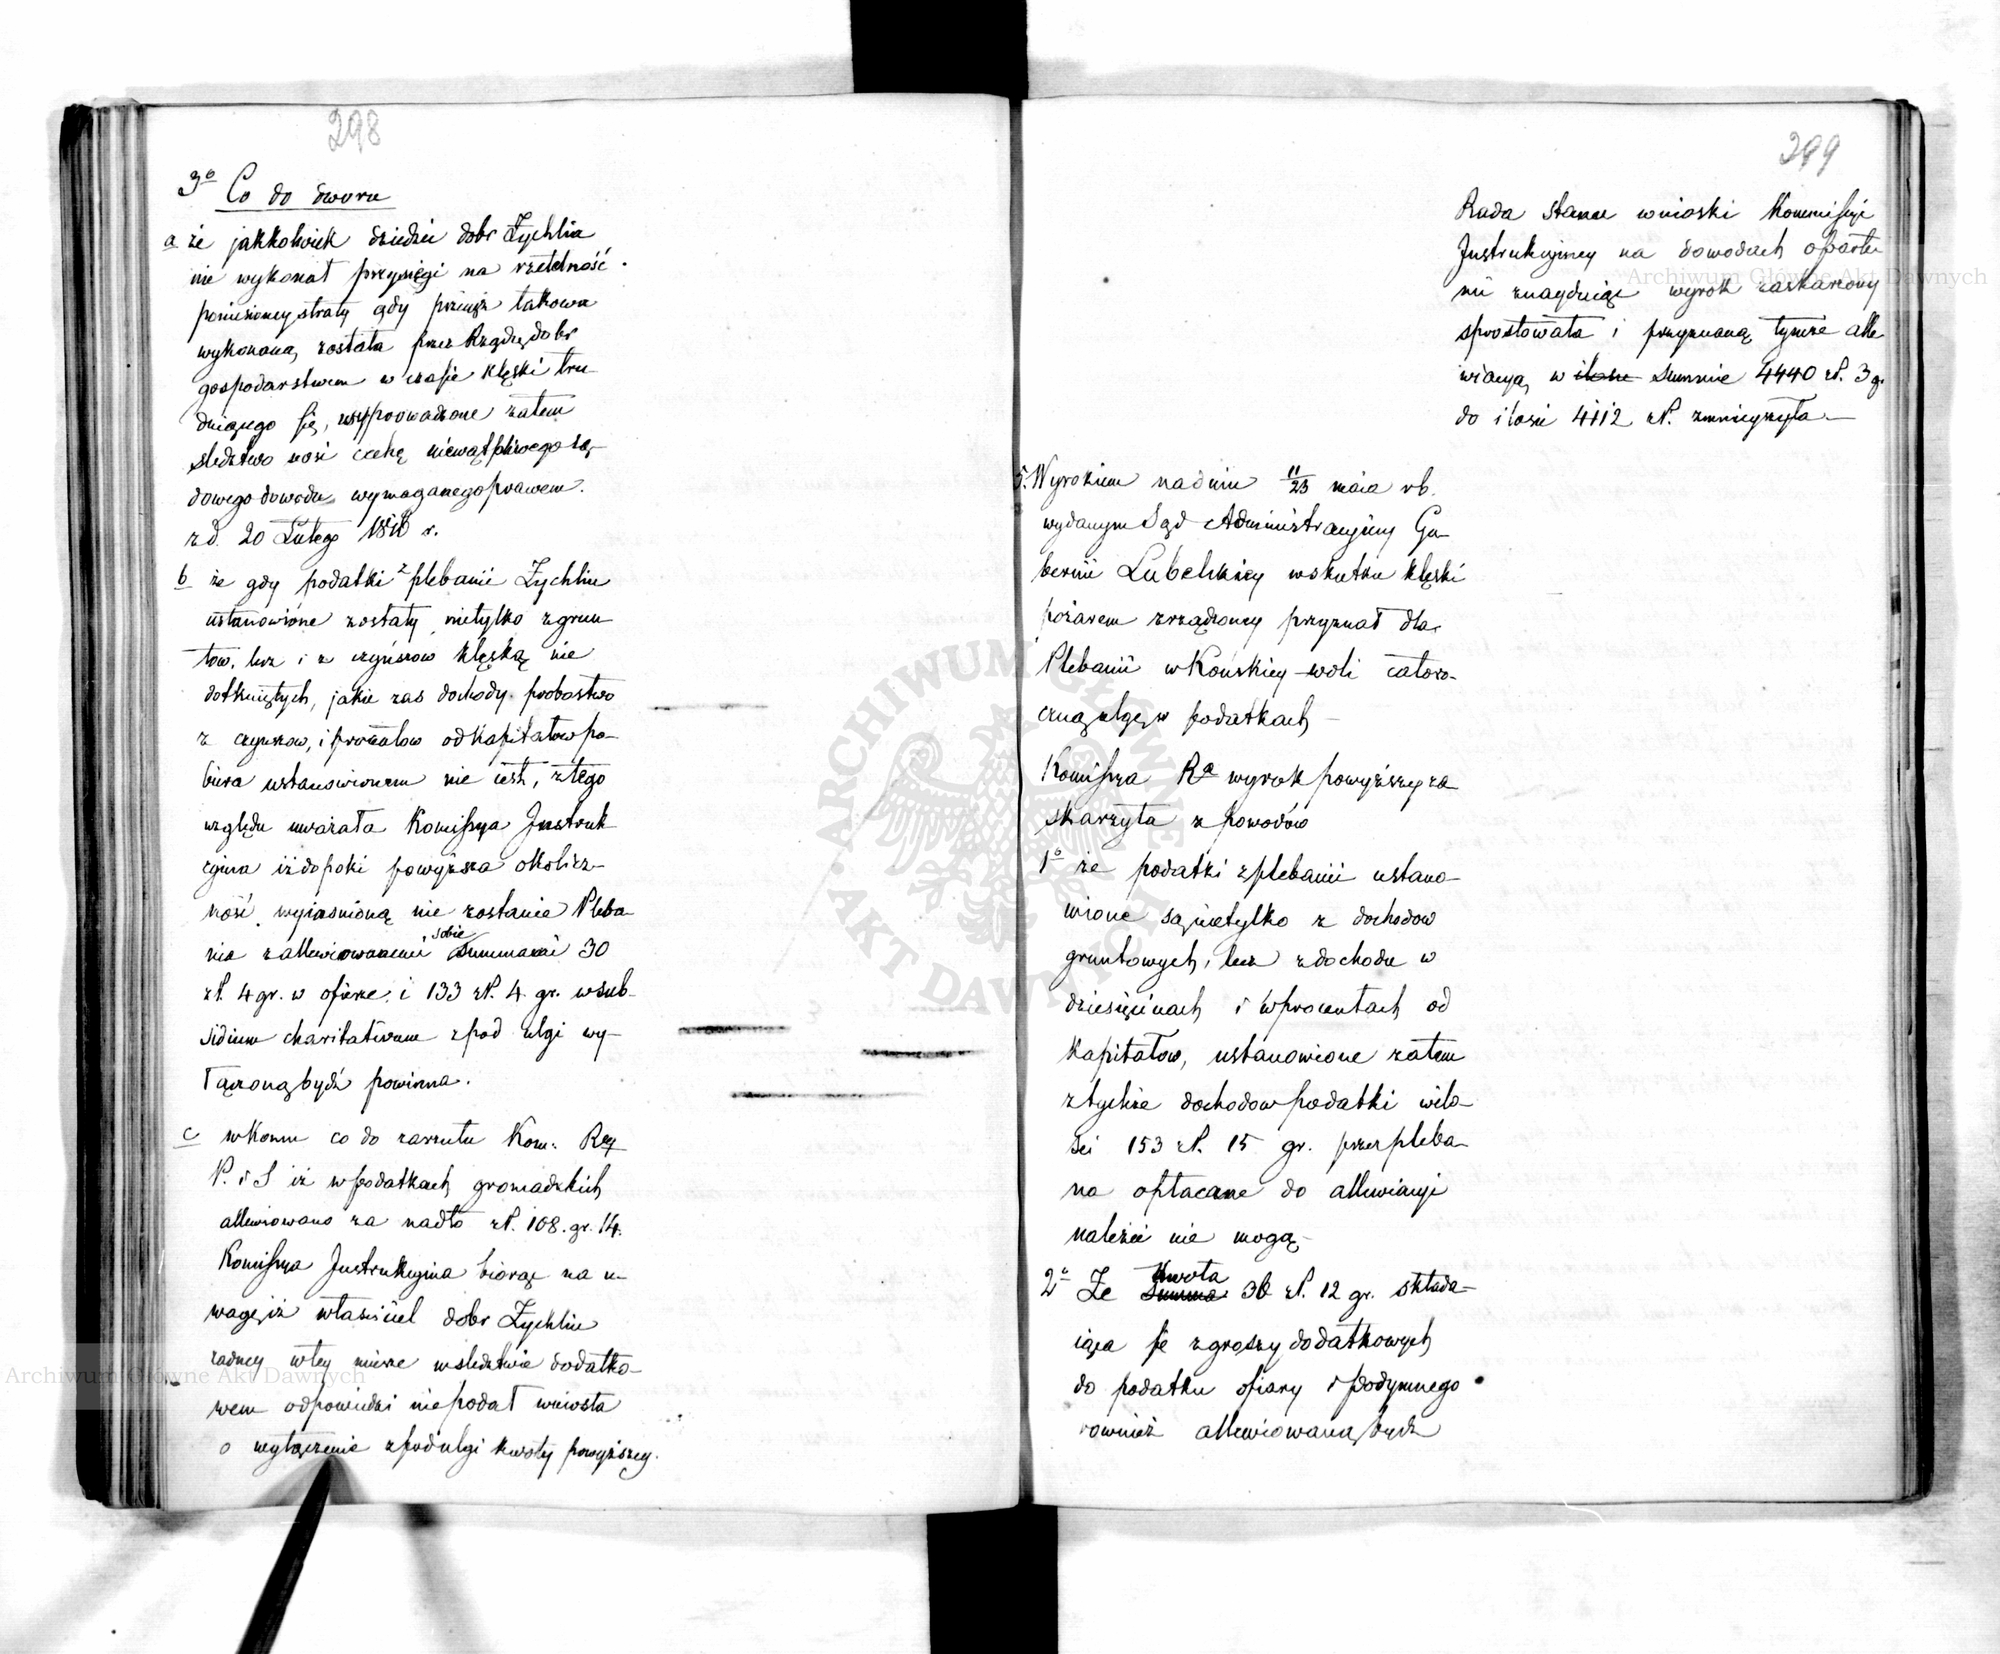 298
3o Co do dworu
a że jakkolwiek dziedzic dobr Żychlin
nie wykonał przysięgi na rzetelność
poniesioney straty gdy przecięż takowa
wykonaną została przez Rządcę dobr
gospodarstwem w czasie klęski tru-
dniącego się, wyprowadzone zatem
sledztwo nosi cechę niewątpliwego są-
dowego dowodu wymaganego prawem.
z d. 20 Lutego 1816 r.
b że gdy podatki z plebanii Żychlin
ustanowione zostały nietylko z grun
tow, lecz i z czynszow klęską nie
dotkniętych, jakie zas dochody probostwo
z czynszow, i procentow od kapitałow po-
biera ustanowionem nie iest, z tego
względu uważała Komissya Instruk
cyjna iż dopoki powyższa okolicz-
ność wyiasnioną nie zostanie Pleba
nia z allewiowanemi sobie summami 30
zł. 4 gr. w ofierze i 133 zł. 4 gr. w sub-
sidium charitativum z pod ulgi wy-
łączoną bydź powinna.
c w końcu co do zarzutu Kom: Rzą
P. i S iż w podatkach gromadzkich
allewiowano za nadto zł. 108. gr. 14.
Komissya Instrukcyjna biorąc na u-
wagę, iż własciciel dobr Żychlin
żadney w tey mierze w sledztwie dodatko-
wem odpowiedzi nie podał wniosła
o wyłączenie z pod ulgi kwoty powyższey.
299
Rada stanu wnioski Kommissyi
Instrukcyjney na dowodach oparte-
mi znayduiąc wyrok zaskarżony
sprostowała i przyznaną tymże alle
wiacyą w ilosci summie 4440 zł. 3 g.
do ilosci 4112 zł. zmnieyszyła.—
5. Wyrokiem na dniu 11/23 maia rb.
wydanym Sąd Administracyjny Gu-
bernii Lubelskiey w skutku klęski
pożarem zrządzoney przyznał dla
Plebanii w Konskiey-woli cáłoro-
czną ulgę w podatkach —
Komissya Ra wyrok powyższy za
skarżyła z powodów
1o że podatki z plebanii ustano-
wione są nietylko z dochodow
gruntowych, lecz z dochodu w
dziesięcinach i w procentach od
kapitałow, ustanowione zatem
z tychże dochodow podatki w ilo-
sci 153 zł. 15 gr. przez pleba-
na opłacane do allewiacyi
należeć nie mogą-
2o Że Summa kwota 36 zł. 12 gr. składa-
iąca się z groszy dodatkowych
do podatku ofiary i podymnego
rownież allewiowaną bydź
Archiwum Główne Akt Dawnych
Archiwum Główne Akt Dawnych
ARCHIWUM GŁÓWNE AKT DAWNYCH